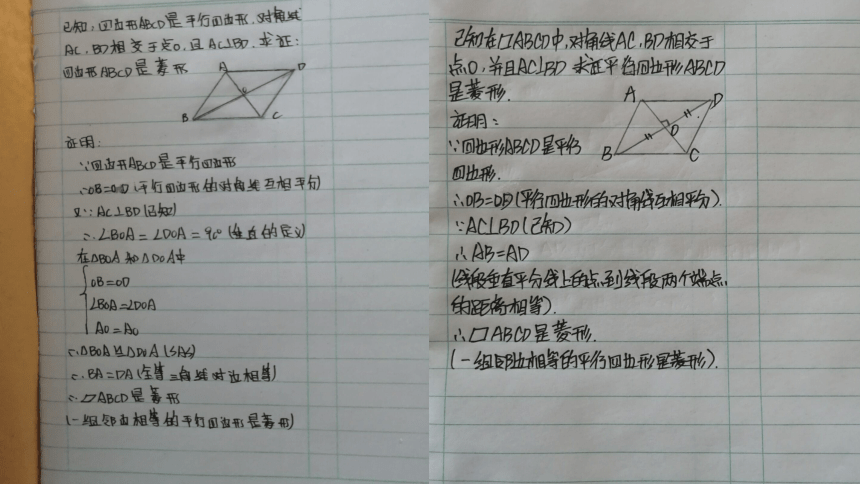 已知,四边形ABCD是平行四边形.对角线
AC,BD相交于点O,且AC⊥BD.求证:
四边形ABCD是菱形
A
D
O
B
C
证明:
∵四边形ABCD是平行四边形
∴OB=OD(平行四边形的对角线互相平分)
又∵AC⊥BD(已知)
∴∠BOA=∠DOA=90°(垂直的定义)
在△BOA和△DOA中
OB=OD
∠BOA=∠DOA
AO=AO
∴△BOA≌△DOA(SAS)
∴BA=DA(全等三角线对边相等)
∴▱ABCD是菱形
(一组邻边相等的平行四边形是菱形)
已知在▱ABCD中,对角线AC,BD相交于
点O,并且AC⊥BD 求证平行四边形ABCD
是菱形.
A
D
O
B
C
证明:
∵四边形ABCD是平行
四边形.
∴OB=OD(平行四边形的对角线互相平分).
∵AC⊥BD(已知)
∴AB=AD
(线段垂直平分线上的点,到线段两个端点,
的距离相等).
∴▱ABCD是菱形.
(一组邻边相等的平行四边形是菱形).